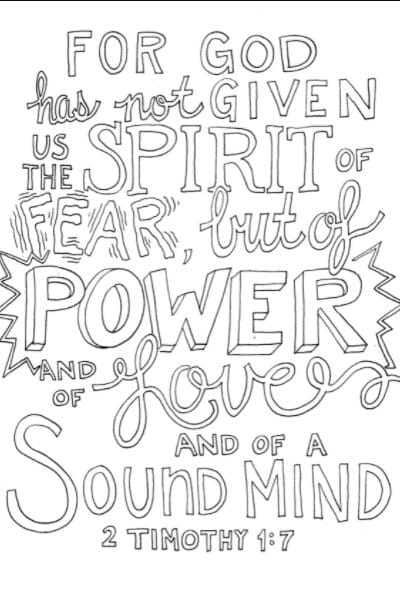 FOR GOD
has not GIVEN
US THE SPIRIT OF
FEAR, but of
POWER
AND OF Love
AND OF A
SOUnD MIND
2 TIMOTHY 1:7